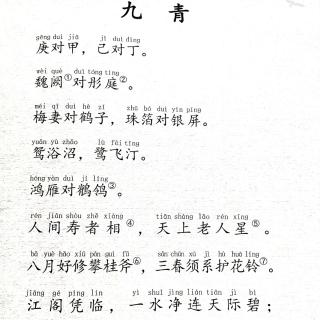 九 青
gēng duì jiǎ jǐ duì dīng
庚对甲，己对丁。
wèi què duì tóng tíng
魏阙①对彤庭②。
méi qī duì hè zǐ zhū bó duì yín píng
梅妻对鹤子，珠箔对银屏。
yuān yù zhǎo lù fēi tīng
鸳浴沼，鹭飞汀。
hóng yàn duì jí líng
鸿雁对鹡鸰③。
rén jiān shòu zhě xiàng tiān shàng lǎo rén xīng
人间寿者相④，天上老人星⑤。
bā yuè hǎo xiū pān guì fǔ sān chūn xū jì hù huā líng
八月好修攀桂斧⑥，三春须系护花铃⑦。
jiāng gé píng lín yì shuǐ jìng lián tiān jì bì
江阁凭临，一水净连天际碧；